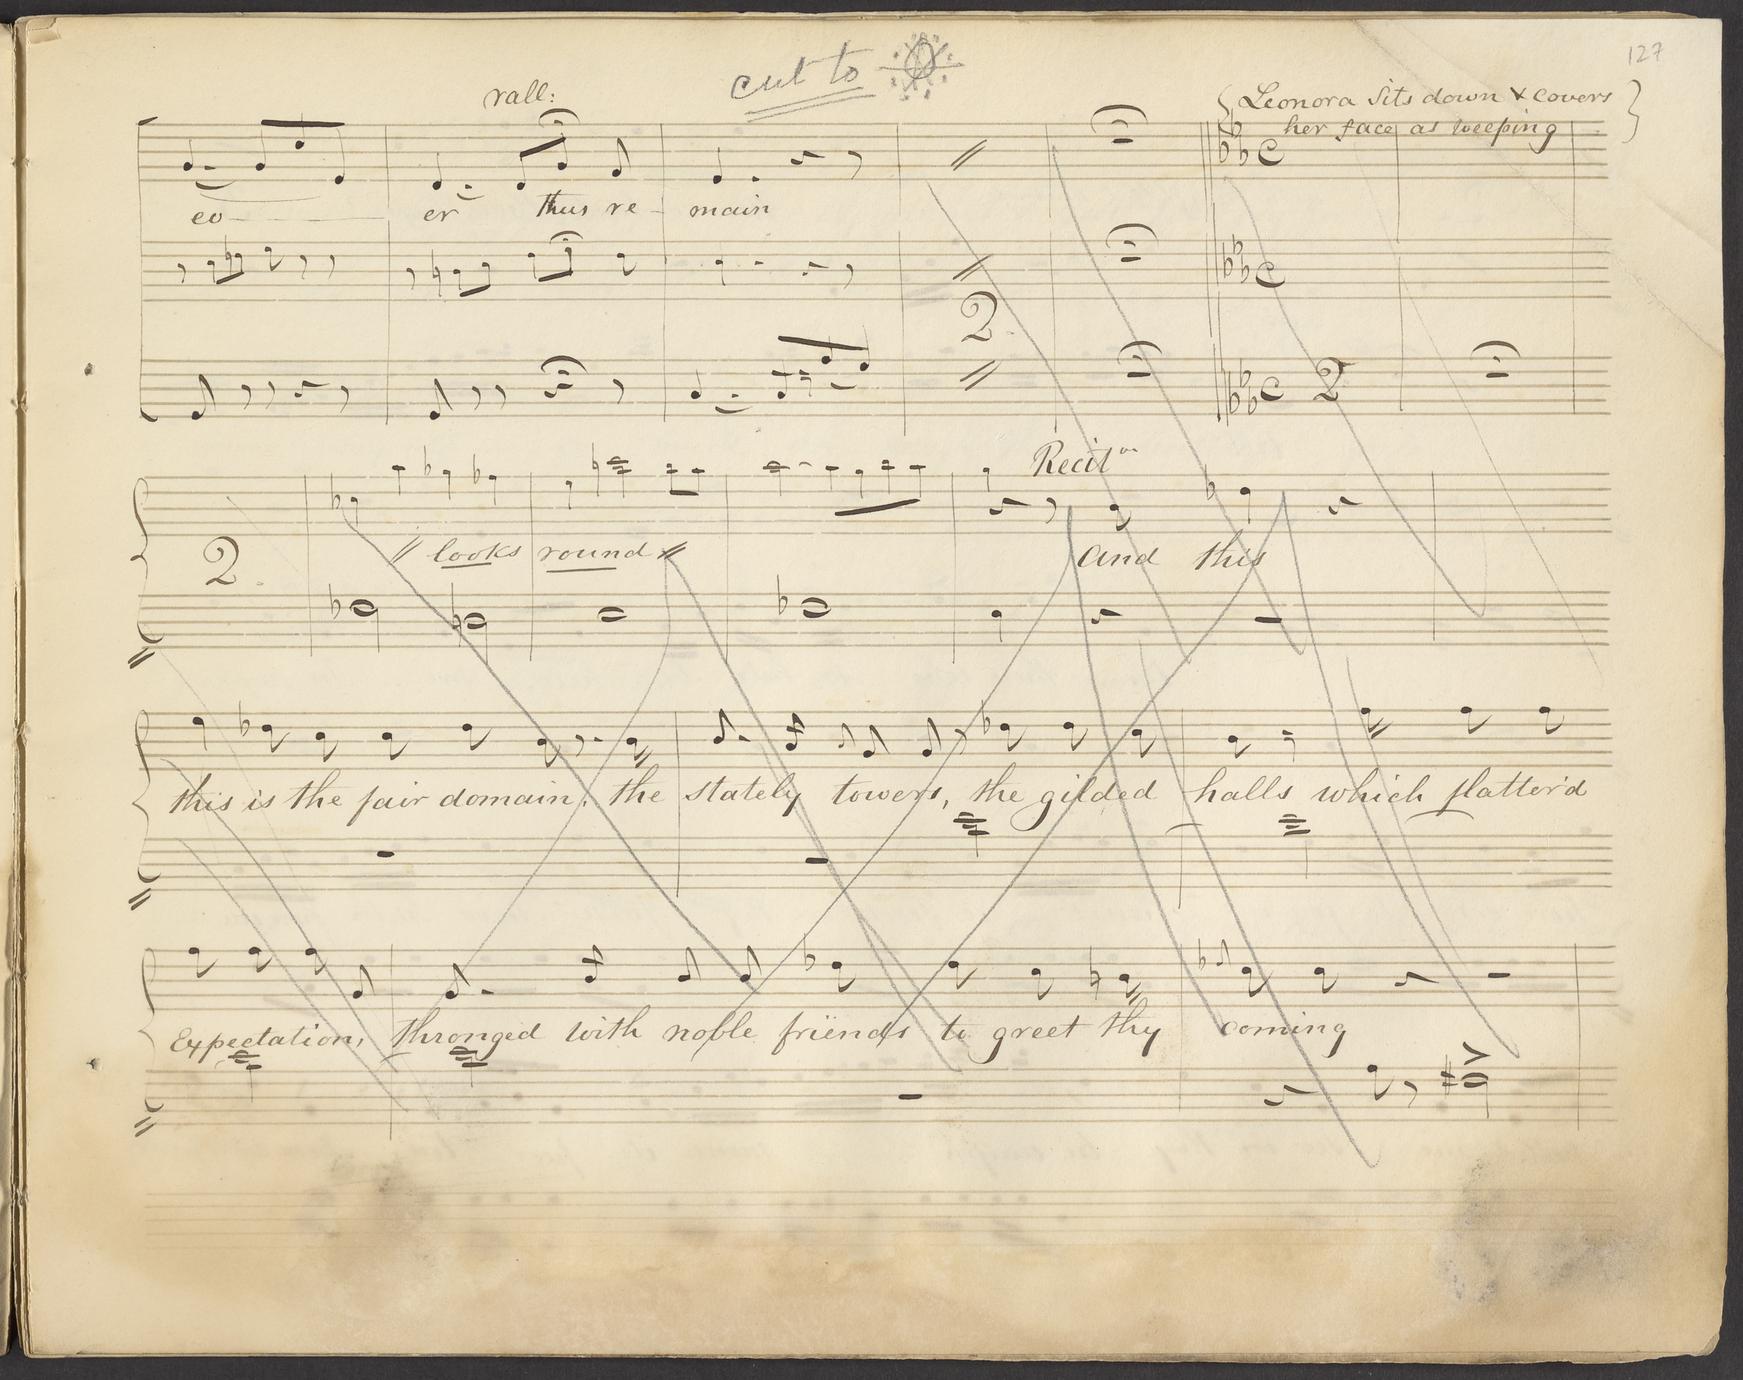 127
cut to
rall:
Leonora Sits down & covers
her face as weeping
ev er thus re - main
2
2
Recit
2
// looks round //
and this
this is the fair domain, the stately towers, the gilded halls which flatter'd
Expectation, thronged with noble friends to greet thy coming